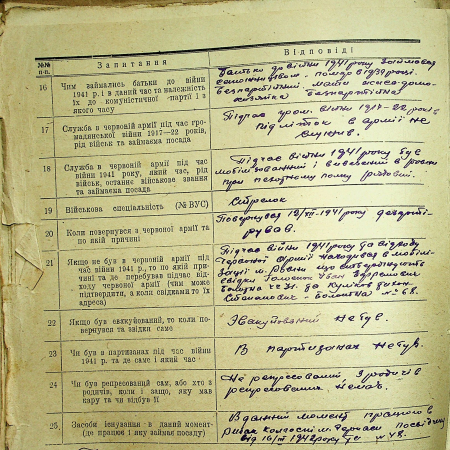 №№ п-п.
Запитання
Відповіді
16
Чим займались батьки до війни
1941 р. і в даний час та належність
їх до комуністичної партії і з
якого часу
Батьки до війни 1941 року займався
безпартійний. Мати
безпартійна
17
Служба в червоній армії під час гро-
мадянської війни 1917—22 років,
рід військ та займаєма посада
Підчас гром. війни 1917-22 років
підліток в армії не
служив.
18
Служба в червоній армії під час
війни 1941 року, який час, рід
військ, останнє військове звання
та займаєма посада
Підчас війни 1941 року був
мобілізований і
при пехотному полку рядовий.
19
Військова спеціальність (№ ВУС)
Стрелок
20
Коли повернувся з червоної армії та
по якій причині
Повернувся 19/VII-1941 року дезерті-
рував.
21
Якщо не був в червоній армії під
час війни 1941 р., то по якій при-
чині та де перебував підчас від-
ходу червоної армії (чим може
підтвердити, а коли свідками то їх
адреса)
Підчас війни 1941 року до відходу
Червоної Армії находився в мобілі-
зації м. що
свідки Іван
№ 68.
22
Якщо був евакуйований, то коли по-
вернувся та звідки само
Эвакуйований не був.
23
Чи був в партизанах під час війни
1941 р. та де саме і який час
В партизанах не був.
24
Чи був репресований сам, або хто з
родичів, коли і защо, яку мав
кару та чи відбув її
Не репресований З родичів
репресованих немає.
25
Засоби існування в даний момент
(де працює і яку займає посаду)
В даний момент працює в
м. Черкаси
від 16/III 1942 року № 48.